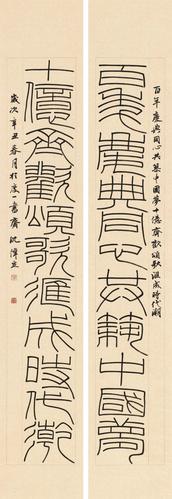 百年慶典同心共築中國夢十億齊歡頌歌滙成時代潮
百年慶典同心共築中國夢
十億齊歡頌歌滙成時代潮
歲次辛丑春月於書齋 沈